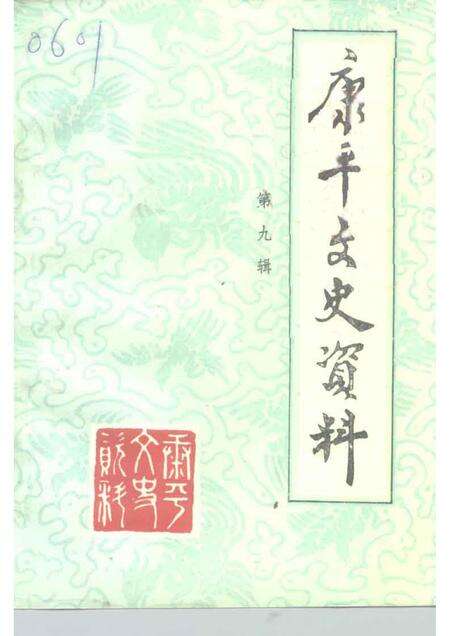 0601
康平文史資料
第九辑
康平
文史
資料